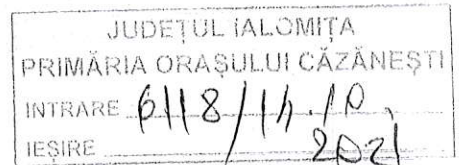 JUDEȚUL IALOMIȚA
PRIMĂRIA ORAȘULUI CĂZĂNEȘTI
INTRARE 6118/14.10.
IEȘIRE 2021